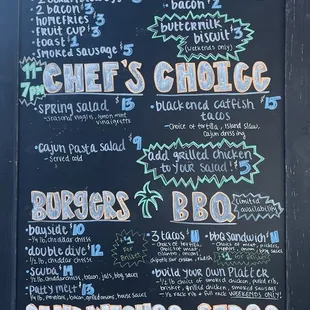 2 bacon 3
homefries 3
fruit cup 3
toast 1
smoked sausage $5
bacon 2
buttermilk
biscuit $3
(weekends only)
11-
7pm
CHEF'S CHOICE
spring salad $13
- seasonal veggies, lemon mint
vinaigrette
cajun pasta salad $9
- served cold
blackened catfish $15
tacos
- choice of tortilla, island slaw,
cajun dressing
add grilled chicken
to your salad! $5
BURGERS
bayside $10
- 1/4 lb, cheddar cheese
double dive $12
- 1/2 lb, cheddar cheese
scuba $14
- 1/2 lb, cheddar cheese, bacon, jals, bbq sauce
patty melt $13
BBQ
limited
availability
3 tacos $11
- choice of tortilla,
choice of meat,
cilantro, onion,
BBQ sandwich $11
- choice of meat, pickles,
build your own platter
- 1/2 lb choice of smoked chicken, pulled pork,
brisket, grilled chicken, smoked sausage
- 1/2 rack rib + full rack WEEKENDS ONLY!